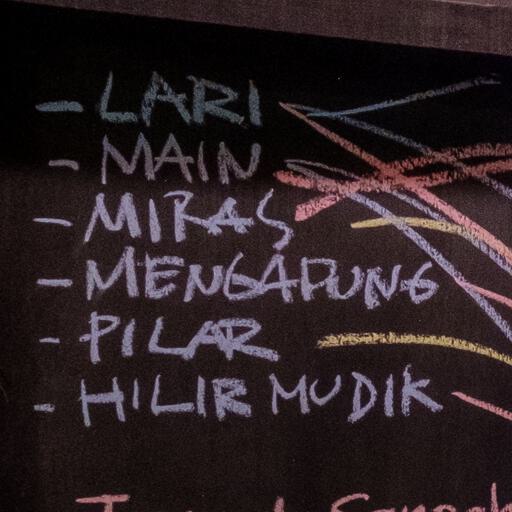 - LARI
- MAIN
- MIRAS
- MENGAPUNG
- PILAR
- HILIR MUDIK